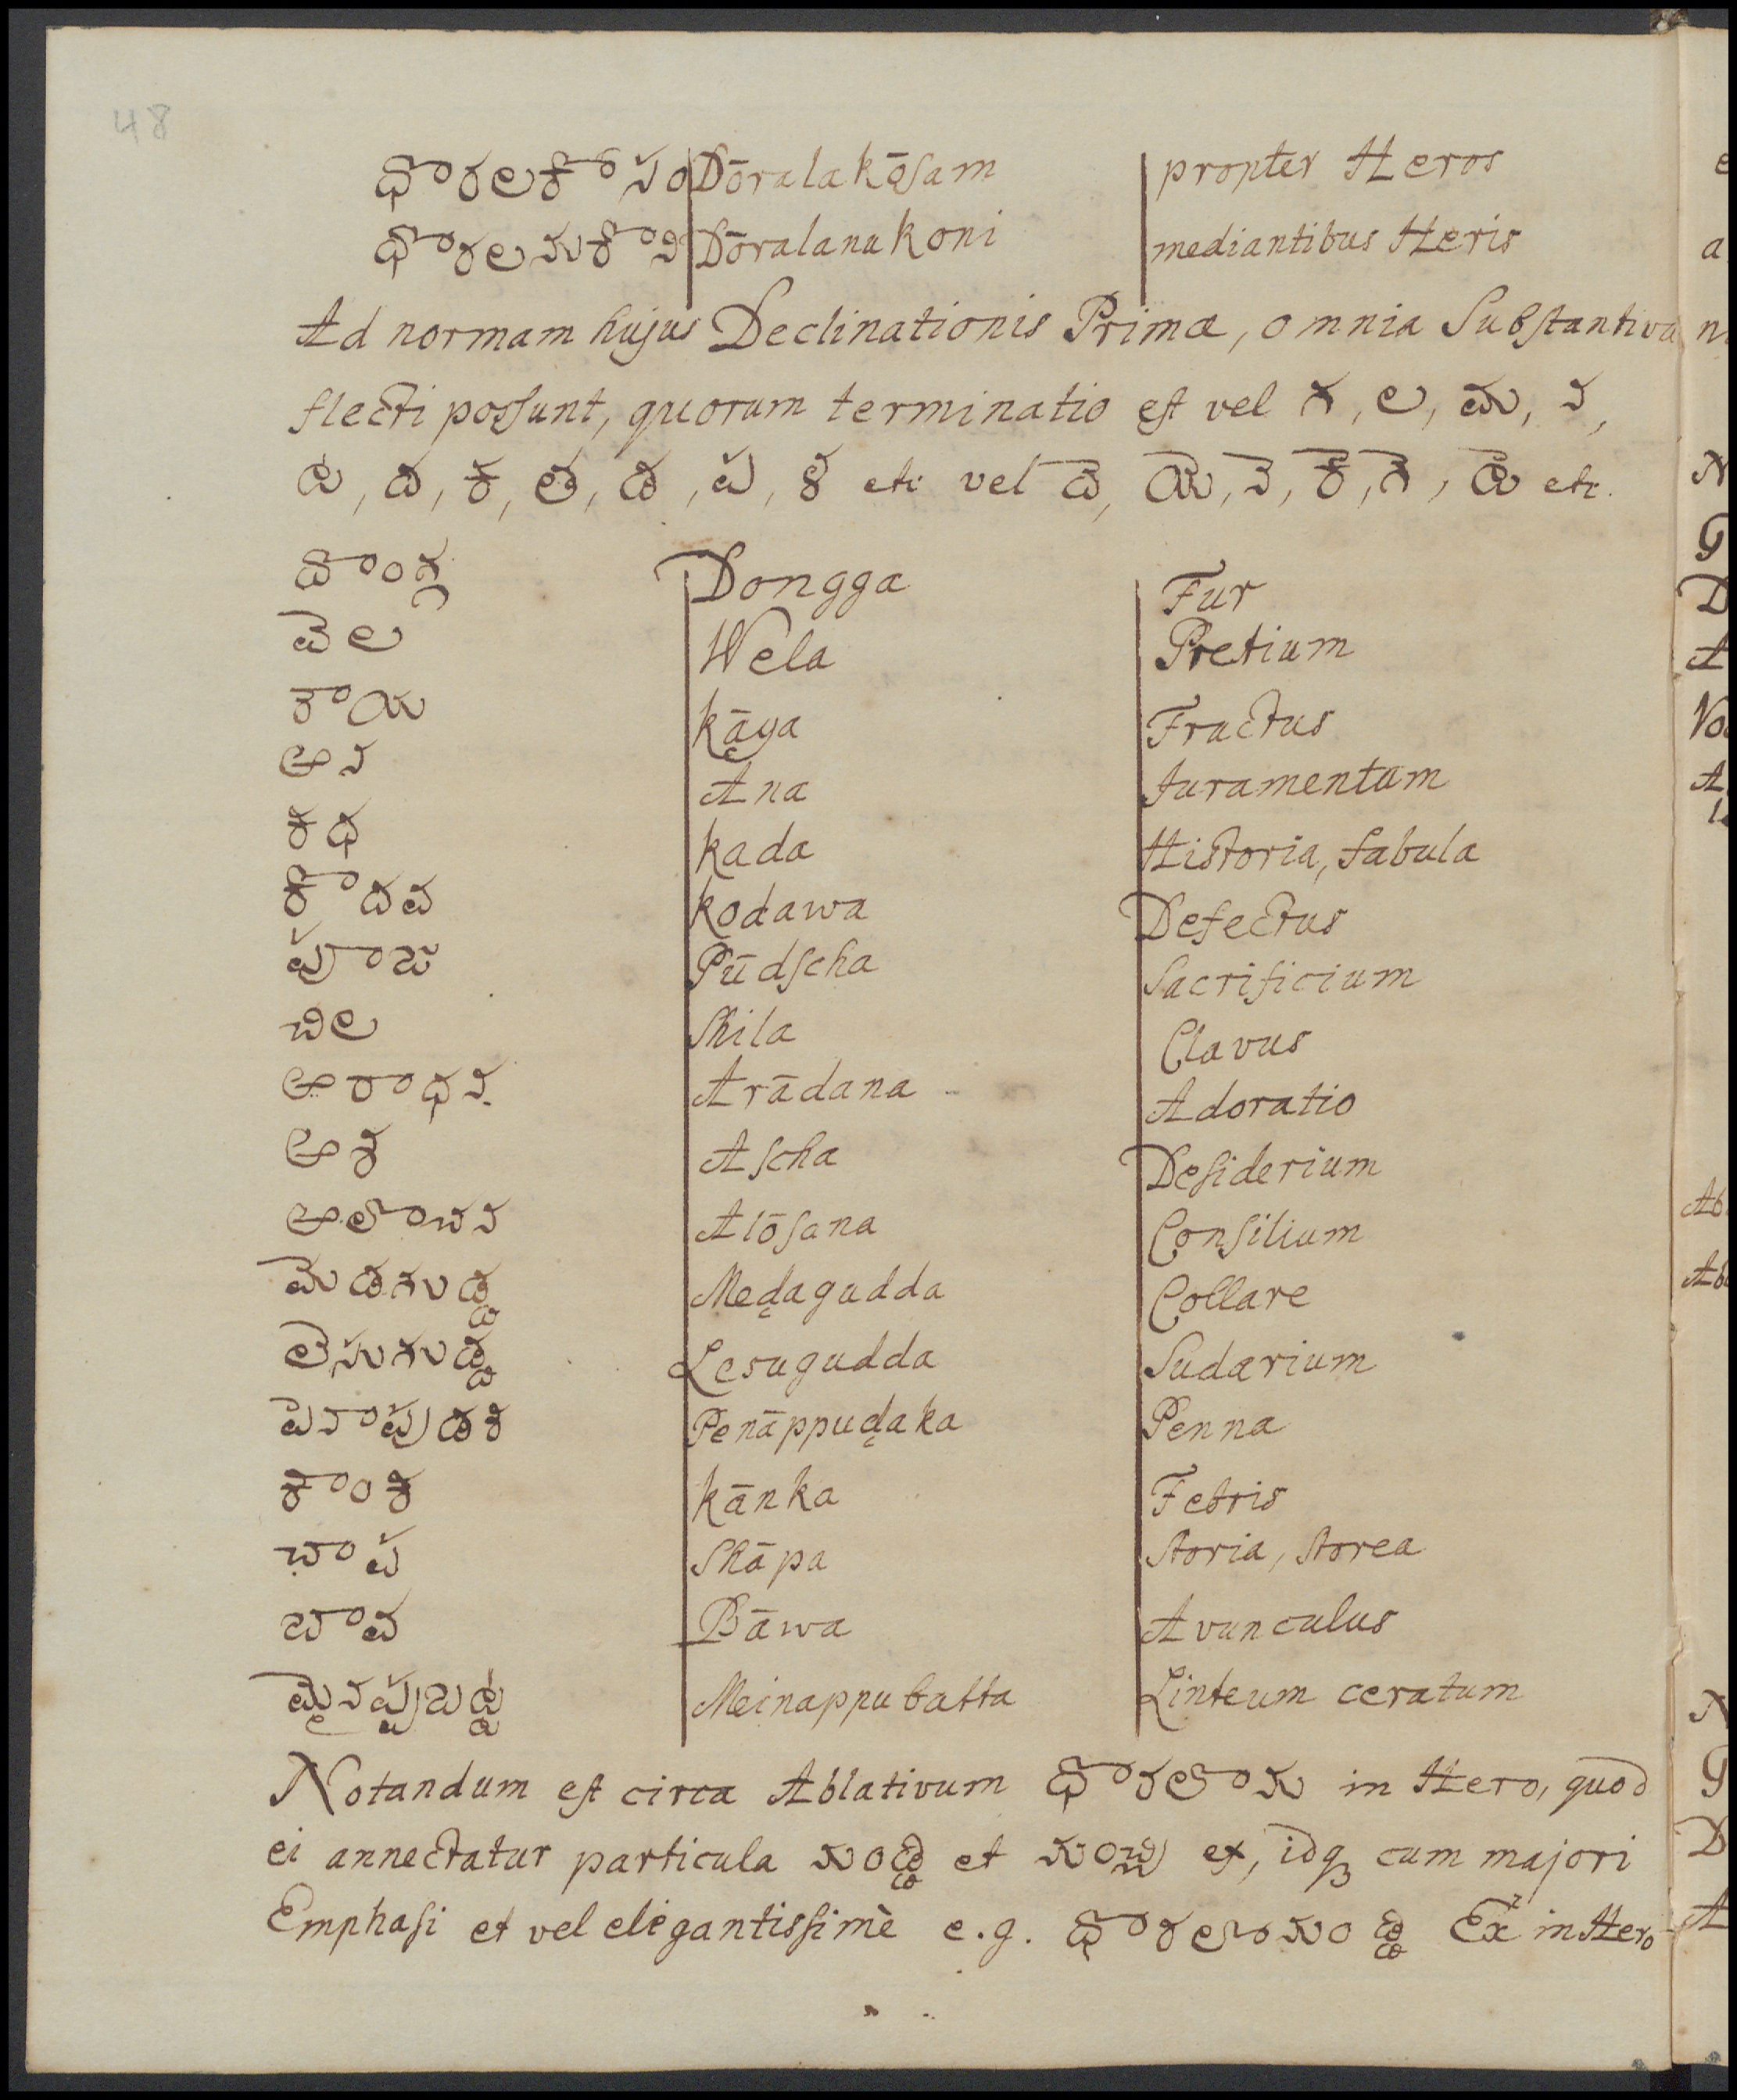 48
ధొరలకొసం Dōralakōsam propter Heros
ధొరలనుకొని Dōralanukoni mediantibus Heris
Ad normam hujus Declinationis Primæ, omnia Substantiva
flecti possunt, quorum terminatio est vel గ, ల, మ, న,
ద, వ, క, త, డ, ప, శ etc vel వె, యె, నె, కె, గె, దె etc.
దొంగ్గ Dongga Fur
వెల Wela Pretium
కాయ kāya Fructus
ఆన Ana Juramentum
కధ kada Historia, fabula
కొదవ kodawa Defectus
పూజ Pūdscha Sacrificium
చిల Shila Clavus
ఆరాధన Arādana Adoratio
ఆశ Ascha Desiderium
ఆలొచన Alōsana Consilium
మెడగుడ్డ Medagudda Collare
లెసుగుడ్డ Lesugudda Sudarium
పెనాపుడక Penāppudaka Penna
కాంక kānka Febris
చాప Shāpa Storia, Storea
బావ Bāwa Avunculus
మైనప్పుబట్ట Meinappubatta Linteum ceratum
Notandum est circa Ablativum ధొరలొను in Hero, quod
ei annectatur particula నుండ్డి et నుంచ్చి ex, idq cum majori
Emphasi et vel elegantissimè e.g. ధొరలొనుండ్డి Ex in Hero